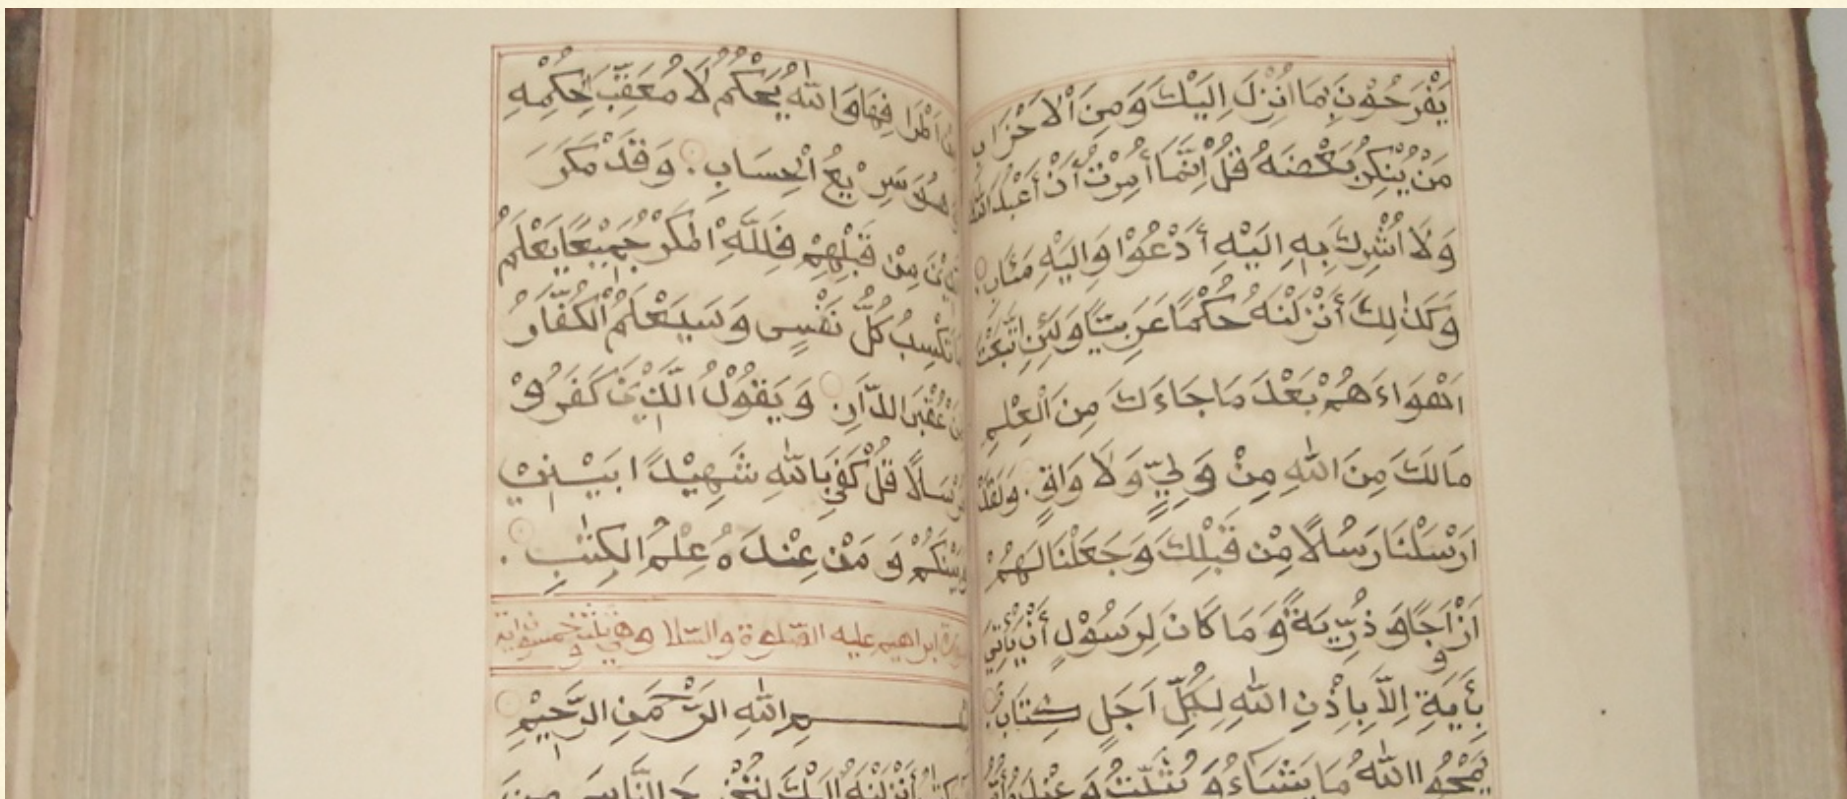 يَفْرَحُوْنَ بِمَا اُنْزِلَ اِلَيْكَ وَمِنَ الْاَحْزَابِ
مَنْ يُنْكِرُ بَعْضَهُ قُلْ اِنَّمَا أُمِرْتُ أَنْ أَعْبُدَ اللّٰهَ
وَلَا اُشْرِكَ بِهِ اِلَيْهِ أَدْعُوْا وَاِلَيْهِ مَئَابِ
وَكَذٰلِكَ أَنْزَلْنٰهُ حُكْمًا عَرَبِيًّا وَلَئِنِ اتَّبَعْتَ
اَهْوَاءَهُمْ بَعْدَ مَا جَاءَكَ مِنَ الْعِلْمِ
مَا لَكَ مِنَ اللّٰهِ مِنْ وَلِيٍّ وَلَا وَاقٍ وَلَقَدْ
اَرْسَلْنَا رُسُلًا مِنْ قَبْلِكَ وَجَعَلْنَا لَهُمْ
اَزْوَاجًا وَذُرِّيَةً وَمَا كَانَ لِرَسُوْلٍ أَنْ يَأْتِيَ
بِأَيَةٍ اِلَّا بِاِذْنِ اللّٰهِ لِكُلِّ اَجَلٍ كِتَابٌ
يَمْحُوا اللّٰهُ مَا يَشَاءُ وَيُثَبِّتُ وَعِنْدَهُ
فِهَا وَاللّٰهُ يَحْكُمُ لَا مُعَقِّبَ لِحُكْمِهِ
وَهُوَ سَرِيْعُ الْحِسَابِ وَقَدْ مَكَرَ
مِنْ قَبْلِهِمْ فَلِلّٰهِ الْمَكْرُ جَمِيْعًا يَعْلَمُ
تَكْسِبُ كُلُّ نَفْسٍ وَسَيَعْلَمُ الْكُفَّارُ
عُقْبَى الدَّارِ وَيَقُوْلُ الَّذِيْنَ كَفَرُوْ
قُلْ كَفَى بِاللّٰهِ شَهِيْدًا بَيْنِيْ
وَبَيْنَكُمْ وَمَنْ عِنْدَهُ عِلْمُ الْكِتٰبِ
سورة ابراهيم عليه الصلوة والسلا وهي
بِسْمِ اللّٰهِ الرَّحْمٰنِ الرَّحِيْمِ
أَنْزَلْنٰهُ اِلَيْكَ لِتُخْرِجَ النَّاسَ مِنَ